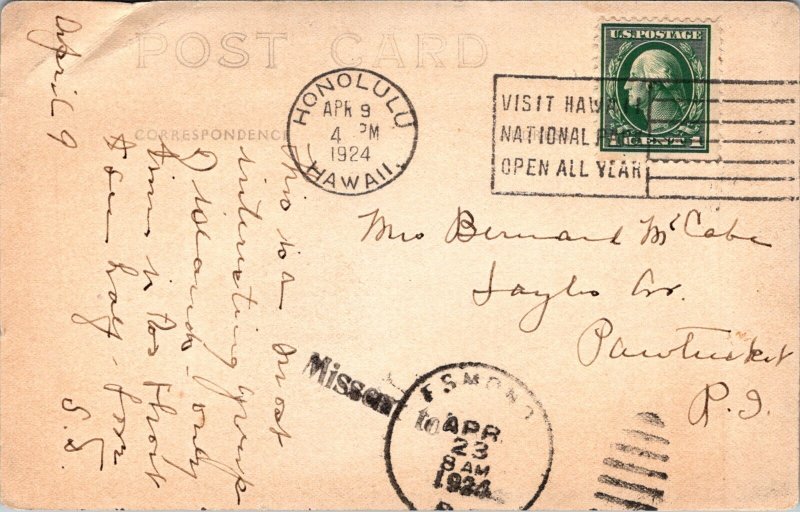 POST CARD
CORRESPONDENCE
HONOLULU
APR 9
4 PM
1924
HAWAII.
VISIT HAWAII
NATIONAL PARK
OPEN ALL YEAR
U.S.POSTAGE
April 9
This is a most
interesting group
of islands - only
time is too short
to see half - from
S.S.
Mrs Bernard McCabe
Sayles Av.
Pawtucket
R.I.
Missent to
ESMOND
APR
23
8 AM
1924
R.